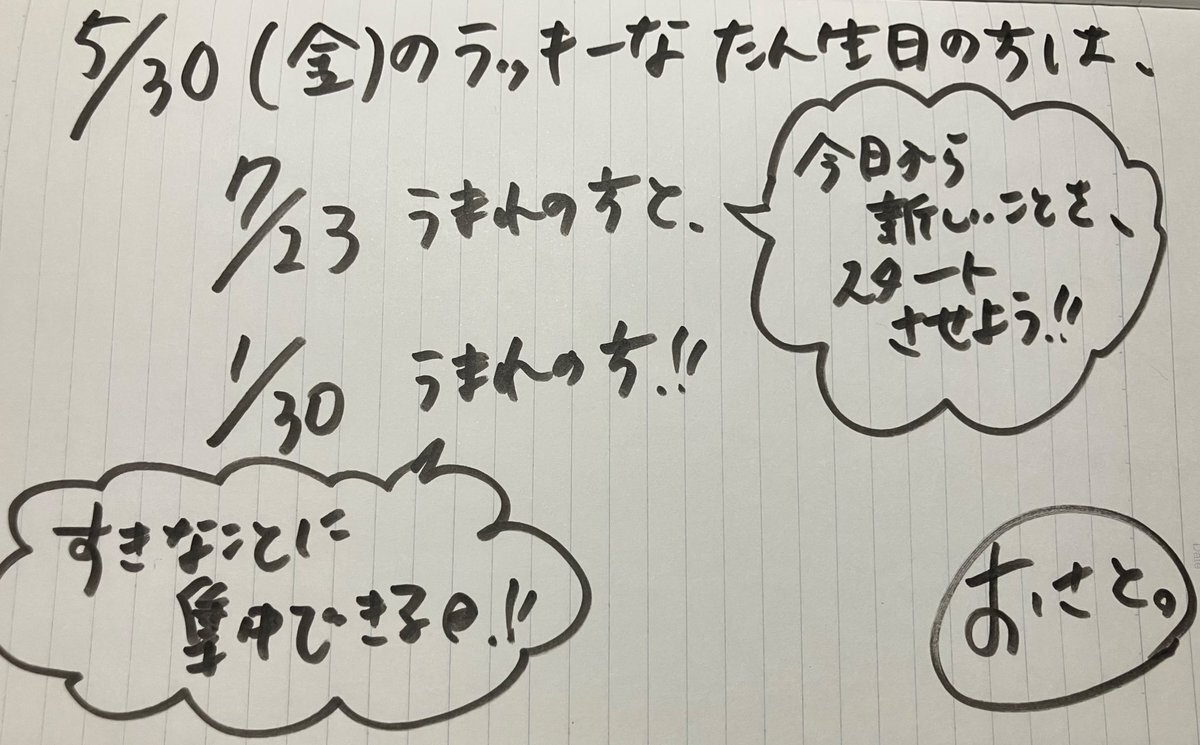 5/30(金)のラッキーなたん生日の方は、
7/23 うまれの方と、
今日から
新しいことを、
スタート
させよう!!
1/30 うまれの方!!
すきなことに
集中できる日!!
おさと。
Date